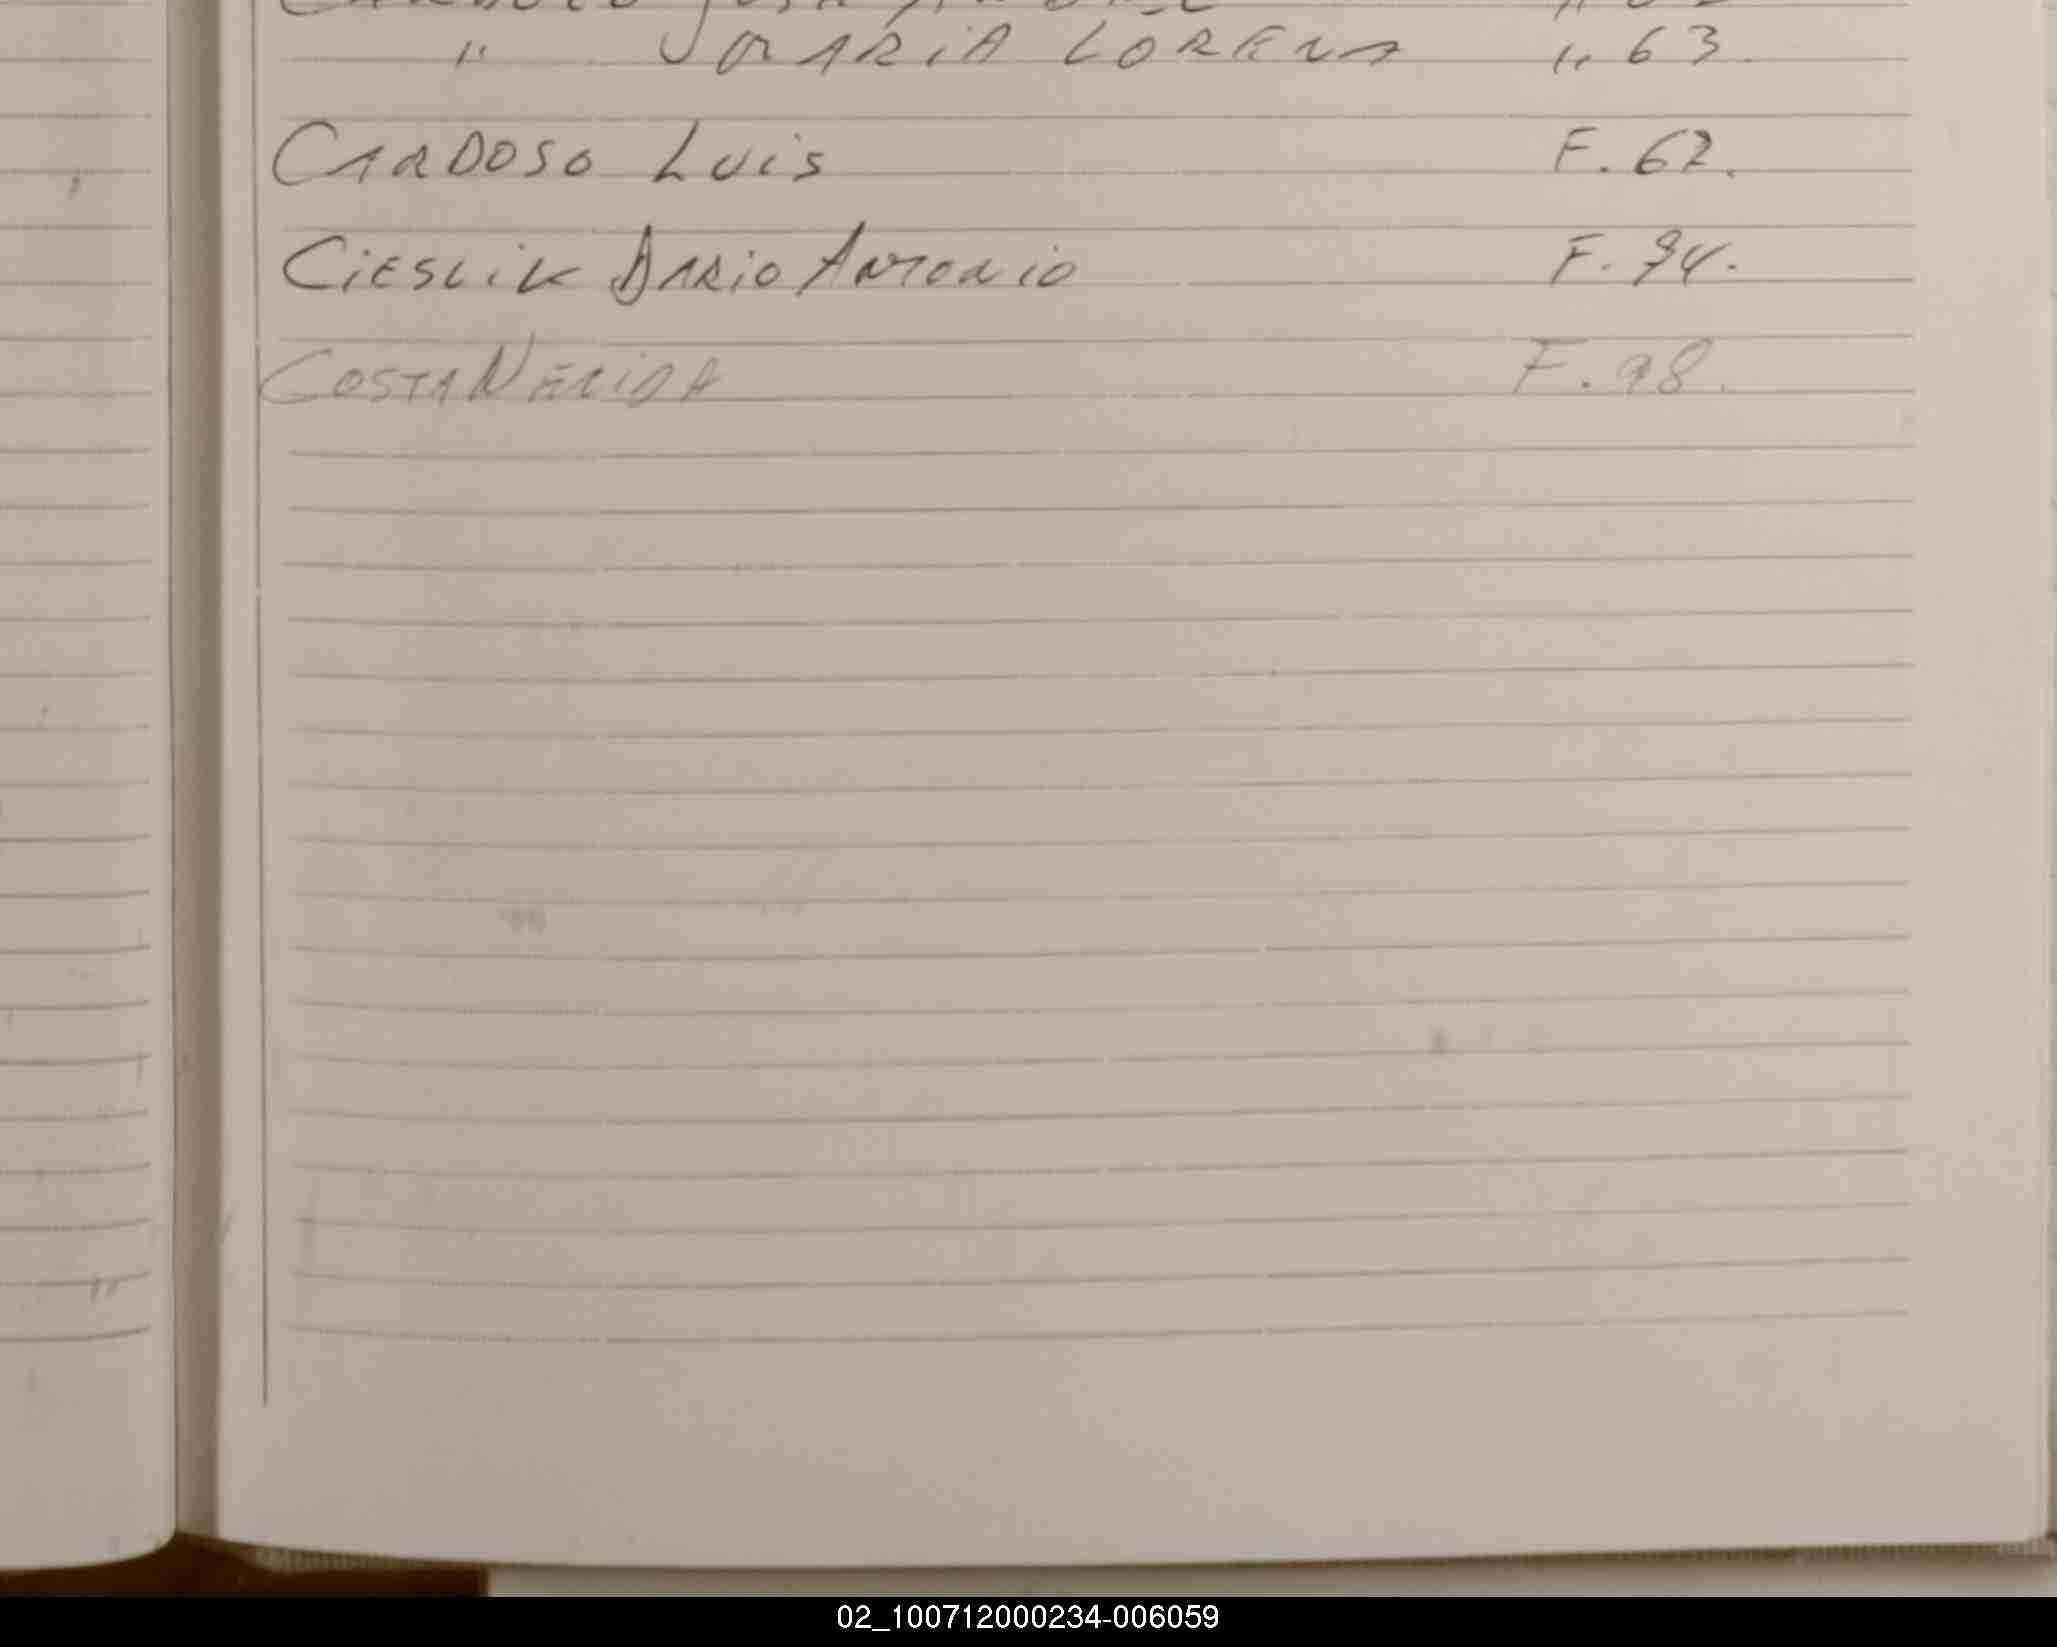 " MARIA LORENA " 63.
CARDOSO LUIS F. 67.
CIESLIK DARIO ANTONIO F. 94.
COSTA NELIDA F. 98.
02_100712000234-006059